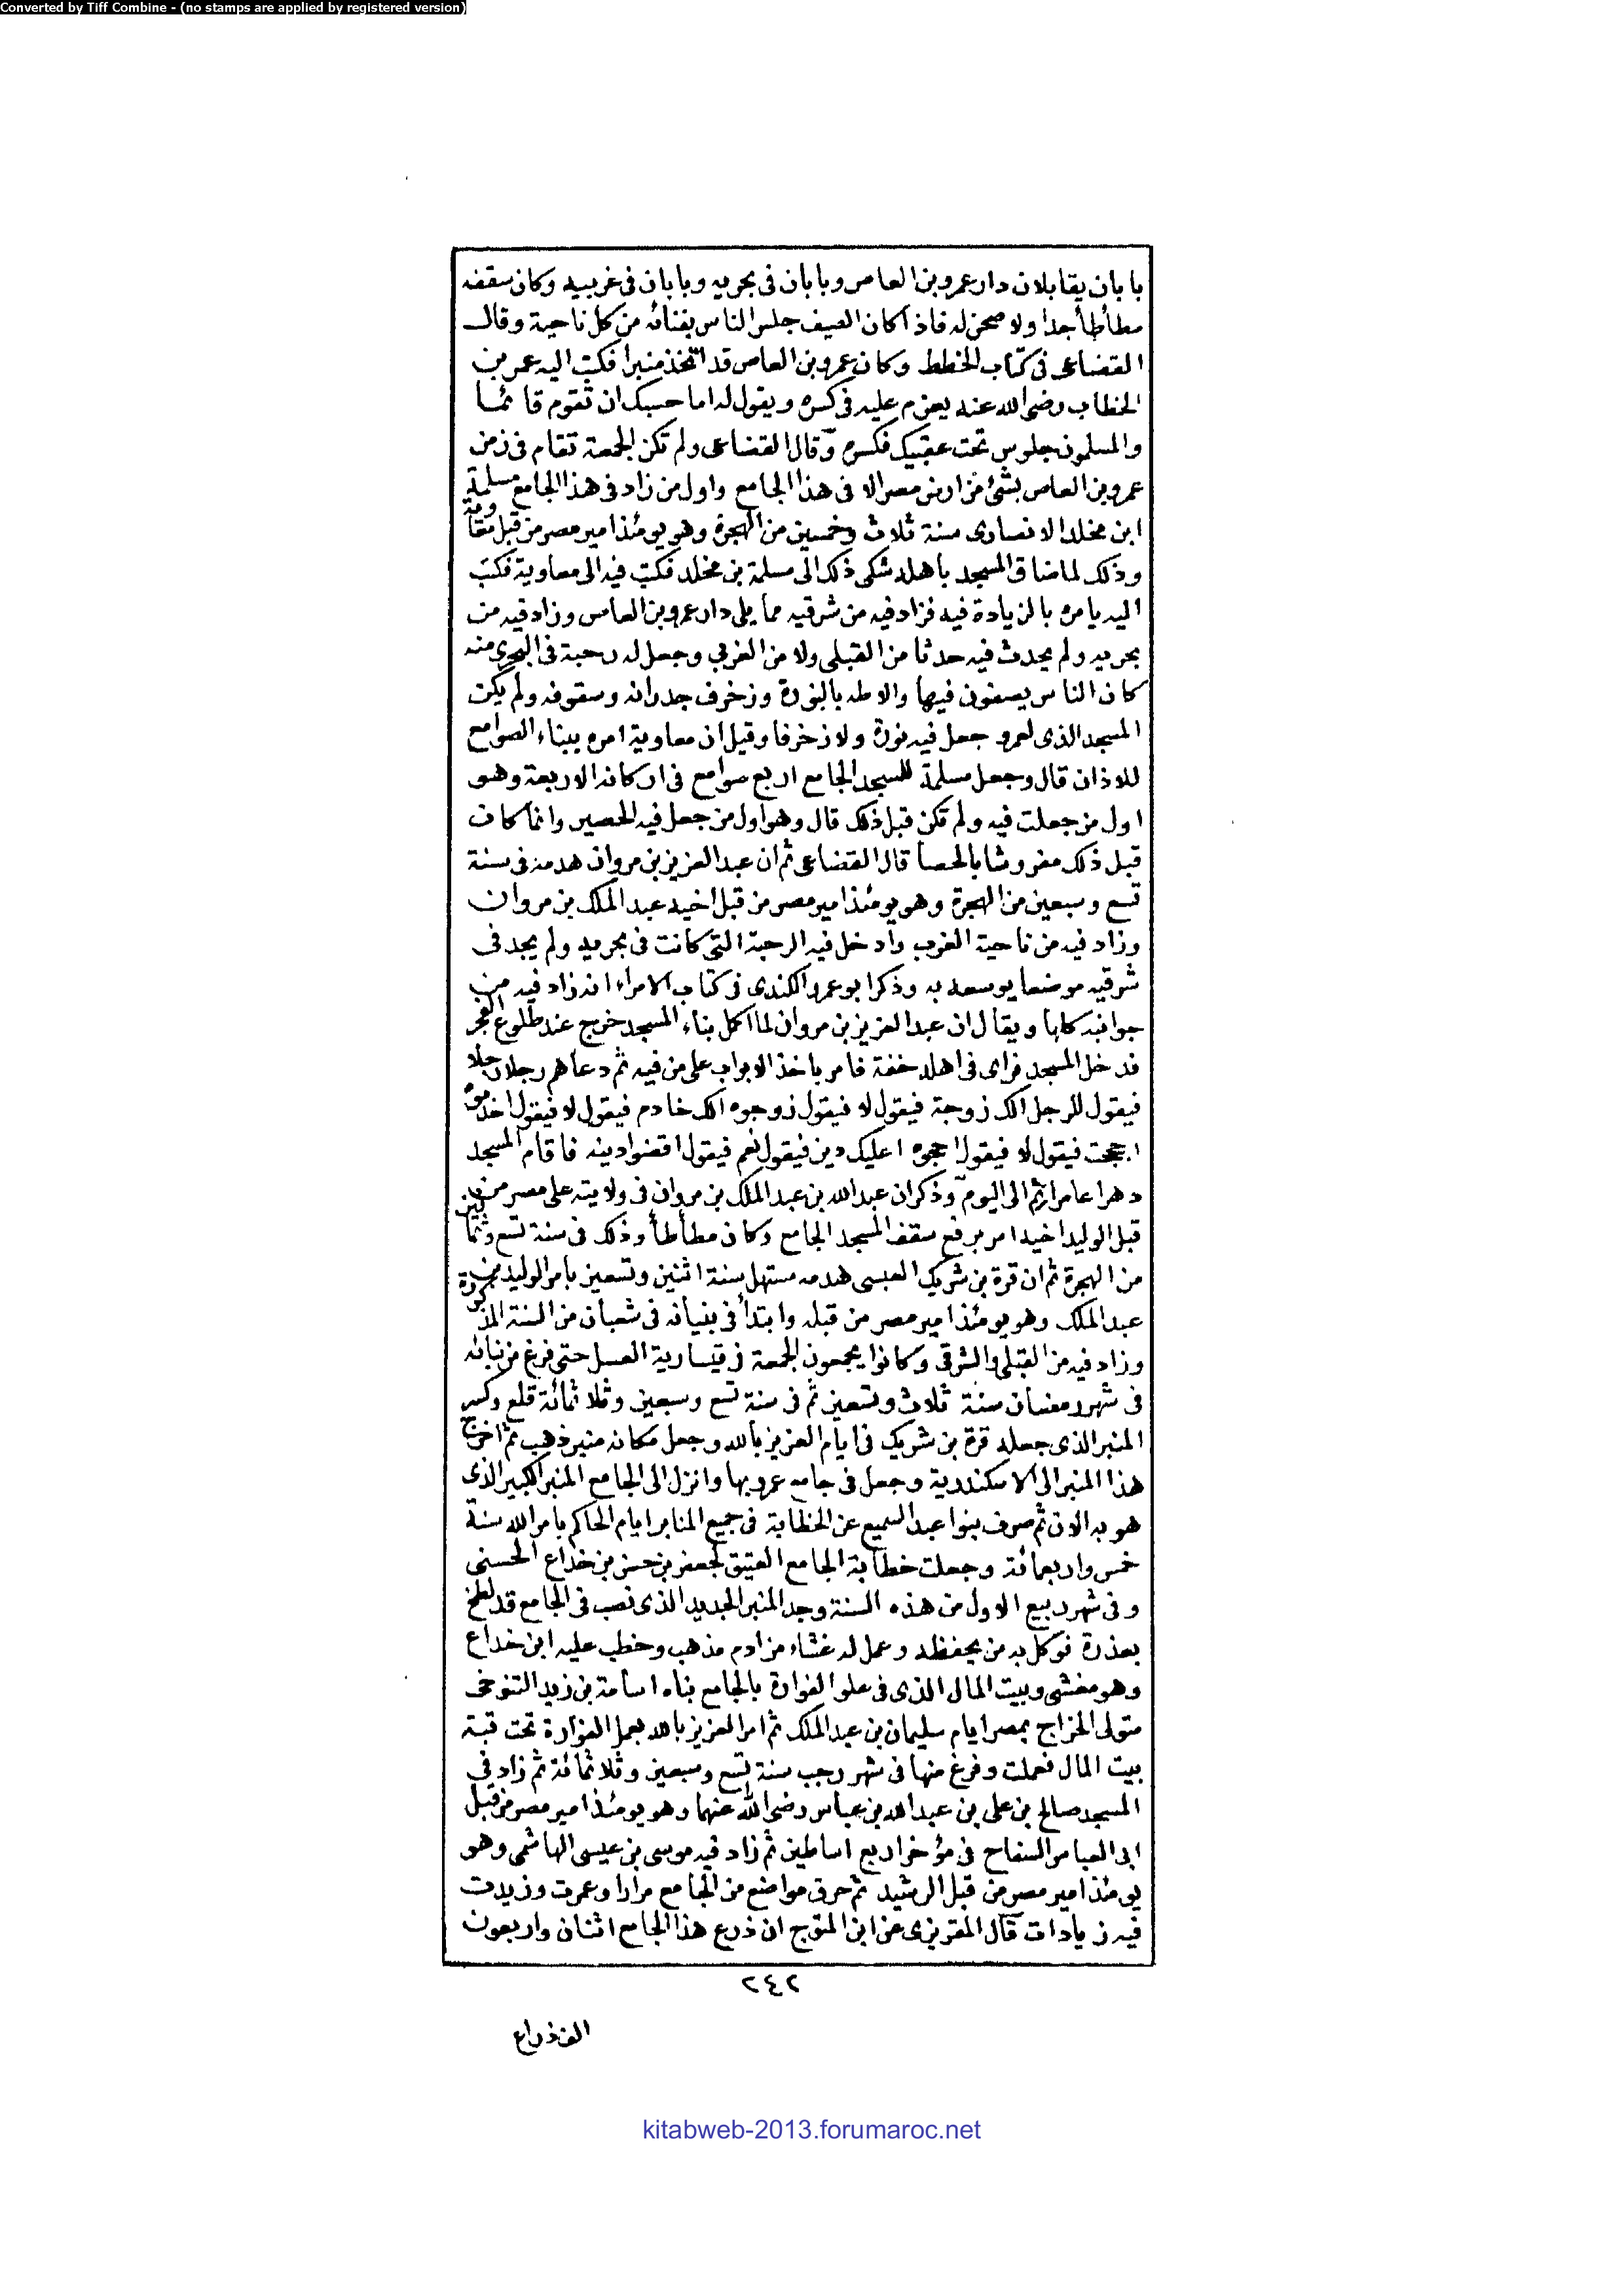 Converted by Tiff Combine - (no stamps are applied by registered version)
بابان يقابلان دار عمرو بن العاص وبابان فى بحريه وبابان فى غربيه وكان سقفه
مطأطأ جدا ولا صحن له فاذا كان الصيف جلس الناس بفنائه من كل ناحية وقال
القضاعى فى كتاب الخطط وكان عمرو بن العاص قد اتخذ منبرا فكتب اليه عمر بن
الخطاب رضى الله عنه يعزم عليه فى كسره ويقول له اما حسبك ان تقوم قائما
والمسلمون جلوس تحت عقبيك فكسره وقال القضاعى ولم تكن الجمعة تقام فى زمن
عمرو بن العاص بشئ من ارض مصر الا فى هذا الجامع واول من زاد فى هذا الجامع مسلمة
ابن مخلد الانصارى سنة ثلاث وخمسين من الهجرة وهو يومئذ امير مصر من قبل معاوية
وذلك لما ضاق المسجد باهله شكى ذلك الى مسلمة بن مخلد فكتب فيه الى معاوية فكتب
اليه يامره بالزيادة فيه فزاد فيه من شرقيه مما يلى دار عمرو بن العاص وزاد فيه من
بحريه ولم يحدث فيه حدثا من القبلى ولا من الغربي وجعل له رحبة فى البحرى منه
كان الناس يصفون فيها والاطه بالنورة وزخرف جدرانه وسقوفه ولم يكن
المسجد الذى لعمرو جعل فيه نورة ولا زخرفا وقيل ان معاوية امره ببناء الصوامع
للاذان قال وجعل مسلمة للمسجد الجامع اربع صوامع فى اركانه الاربعة وهو
اول من جعلت فيه ولم تكن قبل ذلك قال وهو اول من جعل فيه الحصير وانما كان
قبل ذلك مفروشا بالحصا قال القضاعى ثم ان عبد العزيز بن مروان هدمه فى سنة
تسع وسبعين من الهجرة وهو يومئذ امير مصر من قبل اخيه عبد الملك بن مروان
وزاد فيه من ناحية الغرب وادخل فيه الرحبة التى كانت فى بحريه ولم يجد فى
شرقيه موضعا يوسعه به وذكر ابو عمر الكندى فى كتاب الامراء انه زاد فيه من
جوانبه كلها ويقال ان عبد العزيز بن مروان لما اكمل بناء المسجد خرج عند طلوع الفجر
فدخل المسجد فراى فى اهله خفة فامر باخذ الابواب على من فيه ثم دعاهم رجلا رجلا
فيقول للرجل الك زوجة فيقول لا فيقول زوجوه الك خادم فيقول لا فيقول اخدموه
احججت فيقول لا فيقول احجوه اعليك دين فيقول نعم فيقول اقضوا دينه فاقام المسجد
دهرا عامرا ثم الى اليوم وذكر ان عبد الله بن عبد الملك بن مروان فى ولايته على مصر من
قبل الوليد اخيه امر برفع سقف المسجد الجامع وكان مطأطأ وذلك فى سنة تسع وثمانين
من الهجرة ثم ان قرة بن شريك العبسى هدمه مستهل سنة اثنين وتسعين بامر الوليد بن
عبد الملك وهو يومئذ امير مصر من قبله وابتدأ فى بنيانه فى شعبان من السنة المذكورة
وزاد فيه من القبلى والشرقى وكانوا يجمعون الجمعة فى قيسارية العسل حتى فرغ من بنائه
فى شهر رمضان سنة ثلاث وتسعين ثم فى سنة تسع وسبعين وثلاثمائة قلع وكسر
المنبر الذى جعله قرة بن شريك فى ايام العزيز بالله وجعل مكانه منبر ذهب ثم اخرج
هذا المنبر الى الاسكندرية وجعل فى جامع عمرو بها وانزل الى الجامع المنبر الكبير الذى
هو به الان ثم صرف بنوا عبد السميع عن الخطابة فى جميع المنابر ايام الحاكم بامر الله سنة
خمس واربعمائة وجعلت خطابة الجامع العتيق لجعفر بن حسن بن خداع الحسنى
وفى شهر ربيع الاول من هذه السنة وجد المنبر الجديد الذى نصب فى الجامع قد لطخ
بعذرة فوكل به من يحفظه وعمل له غشاء من ادم مذهب وخطب عليه ابن خداع
وهو مغشى وبيت المال الذى فى علو الفوارة بالجامع بناه اسامة بن زيد التنوخى
متولى الخراج بمصر ايام سليمان بن عبد الملك ثم امر العزيز بالله بعمل الفوارة تحت قبة
بيت المال فعملت وفرغ منها فى شهر رجب سنة تسع وسبعين وثلاثمائة ثم زاد فى
المسجد صالح بن على بن عبد الله بن عباس رضى الله عنهما وهو يومئذ امير مصر من قبل
ابى العباس السفاح فى مؤخره اربع اساطين ثم زاد فيه موسى بن عيسى الهاشمى وهو
يومئذ امير مصر من قبل الرشيد ثم حرق مواضع من الجامع مرارا وعمرت وزيدت
فيه زيادات قال المقريزى عن ابن المتوج ان ذرع هذا الجامع اثنان واربعون
٢٤٢
الف ذراع
kitabweb-2013.forumaroc.net